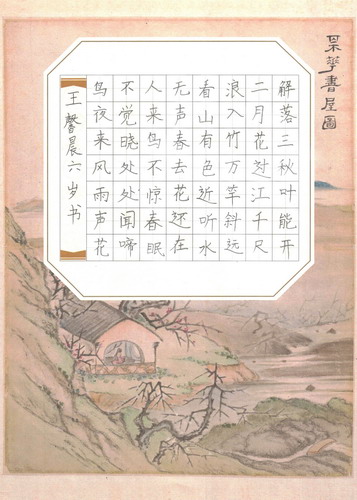 呆華書屋圖
解落三秋叶能开
二月花过江千尺
浪入竹万竿斜远
看山有色近听水
无声春去花还在
人来鸟不惊春眠
不觉晓处处闻啼
鸟夜来风雨声花
王馨晨六岁书